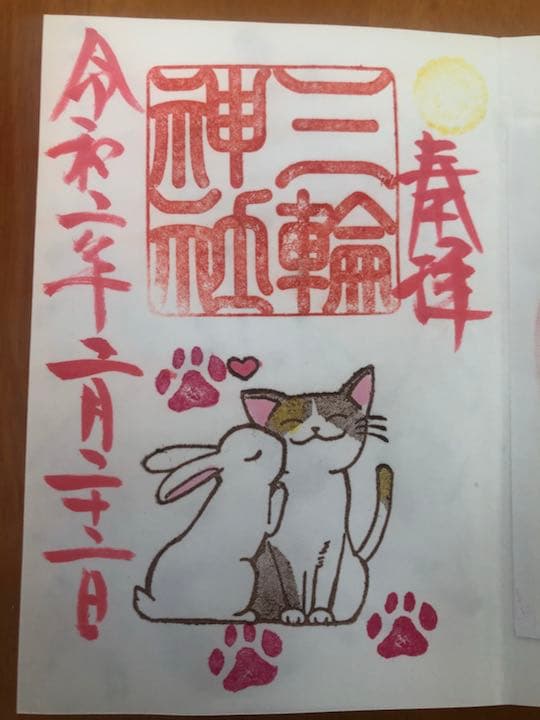 奉拝
三輪
神社
令和二年二月二十二日